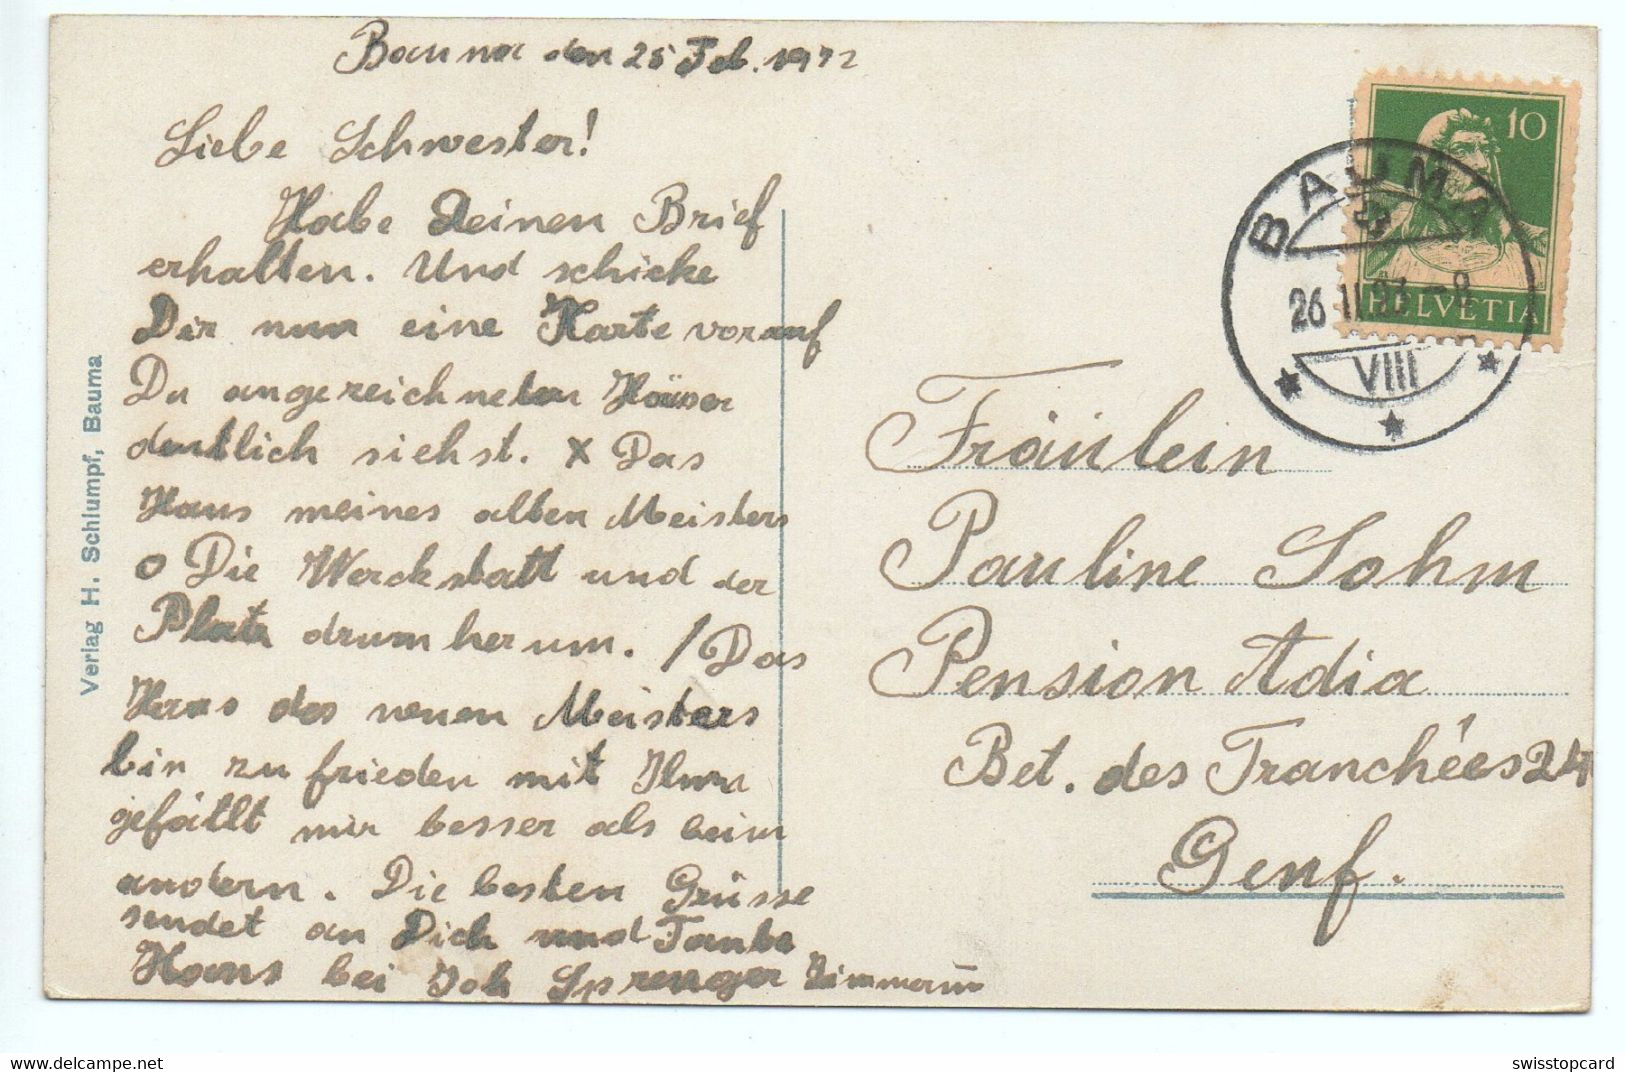 Bauma den 25 Feb. 1922
Liebe Schwester!
Habe Deinen Brief
erhalten. Und schicke
Dir nun eine Karte vorauf
Du angezeichneten Häuser
deutlich siehst. x Das
Haus meines alten Meisters
o Die Werckstatt und der
Platz drum herum. / Das
Haus des neuen Meisters
bin zu frieden mit Ihm
gefällt mir besser als beim
andern. Die besten Grüsse
sendet an Dich und Tante
Hans bei Joh Sprenger Zimmerm
Verlag H. Schlumpf, Bauma
10
HELVETIA
BAUMA
26 II 2 -8
VIII
Fräulein
Pauline Sohm
Pension Adia
Bet. des Tranchées 24
Genf.
delcampe.net
swisstopcard